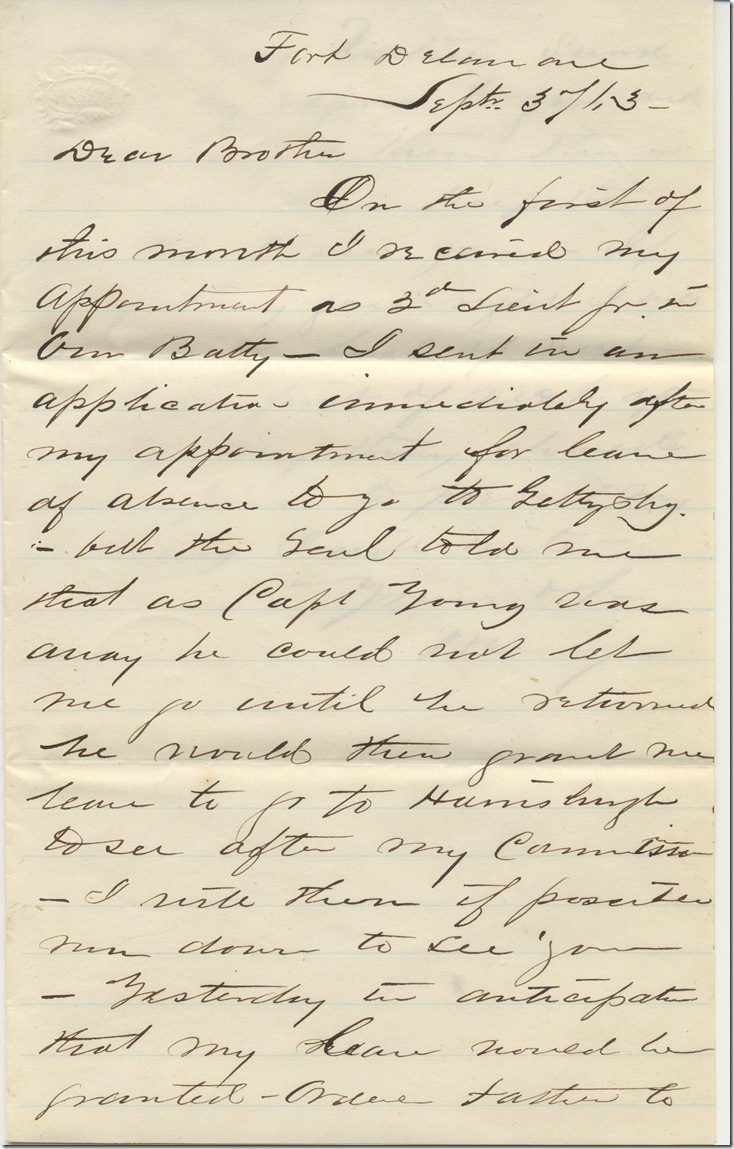 Fort Delaware
Septr. 3d /63 -
Dear Brother
On the first of
this month I received my
appointment as 2d Lieut Jr. in
Our Batty - I sent in an
application immediately after
my appointment for leave
of absence to go to Gettysbg.
- but the Genl told me
that as Capt Young was
away he could not let
me go until he returned
he would then grant me
leave to go to Harrisburgh
to see after my Commission
- I will then if possible
run down to see you
- Yesterday in anticipation
that my leave would be
granted - Father to